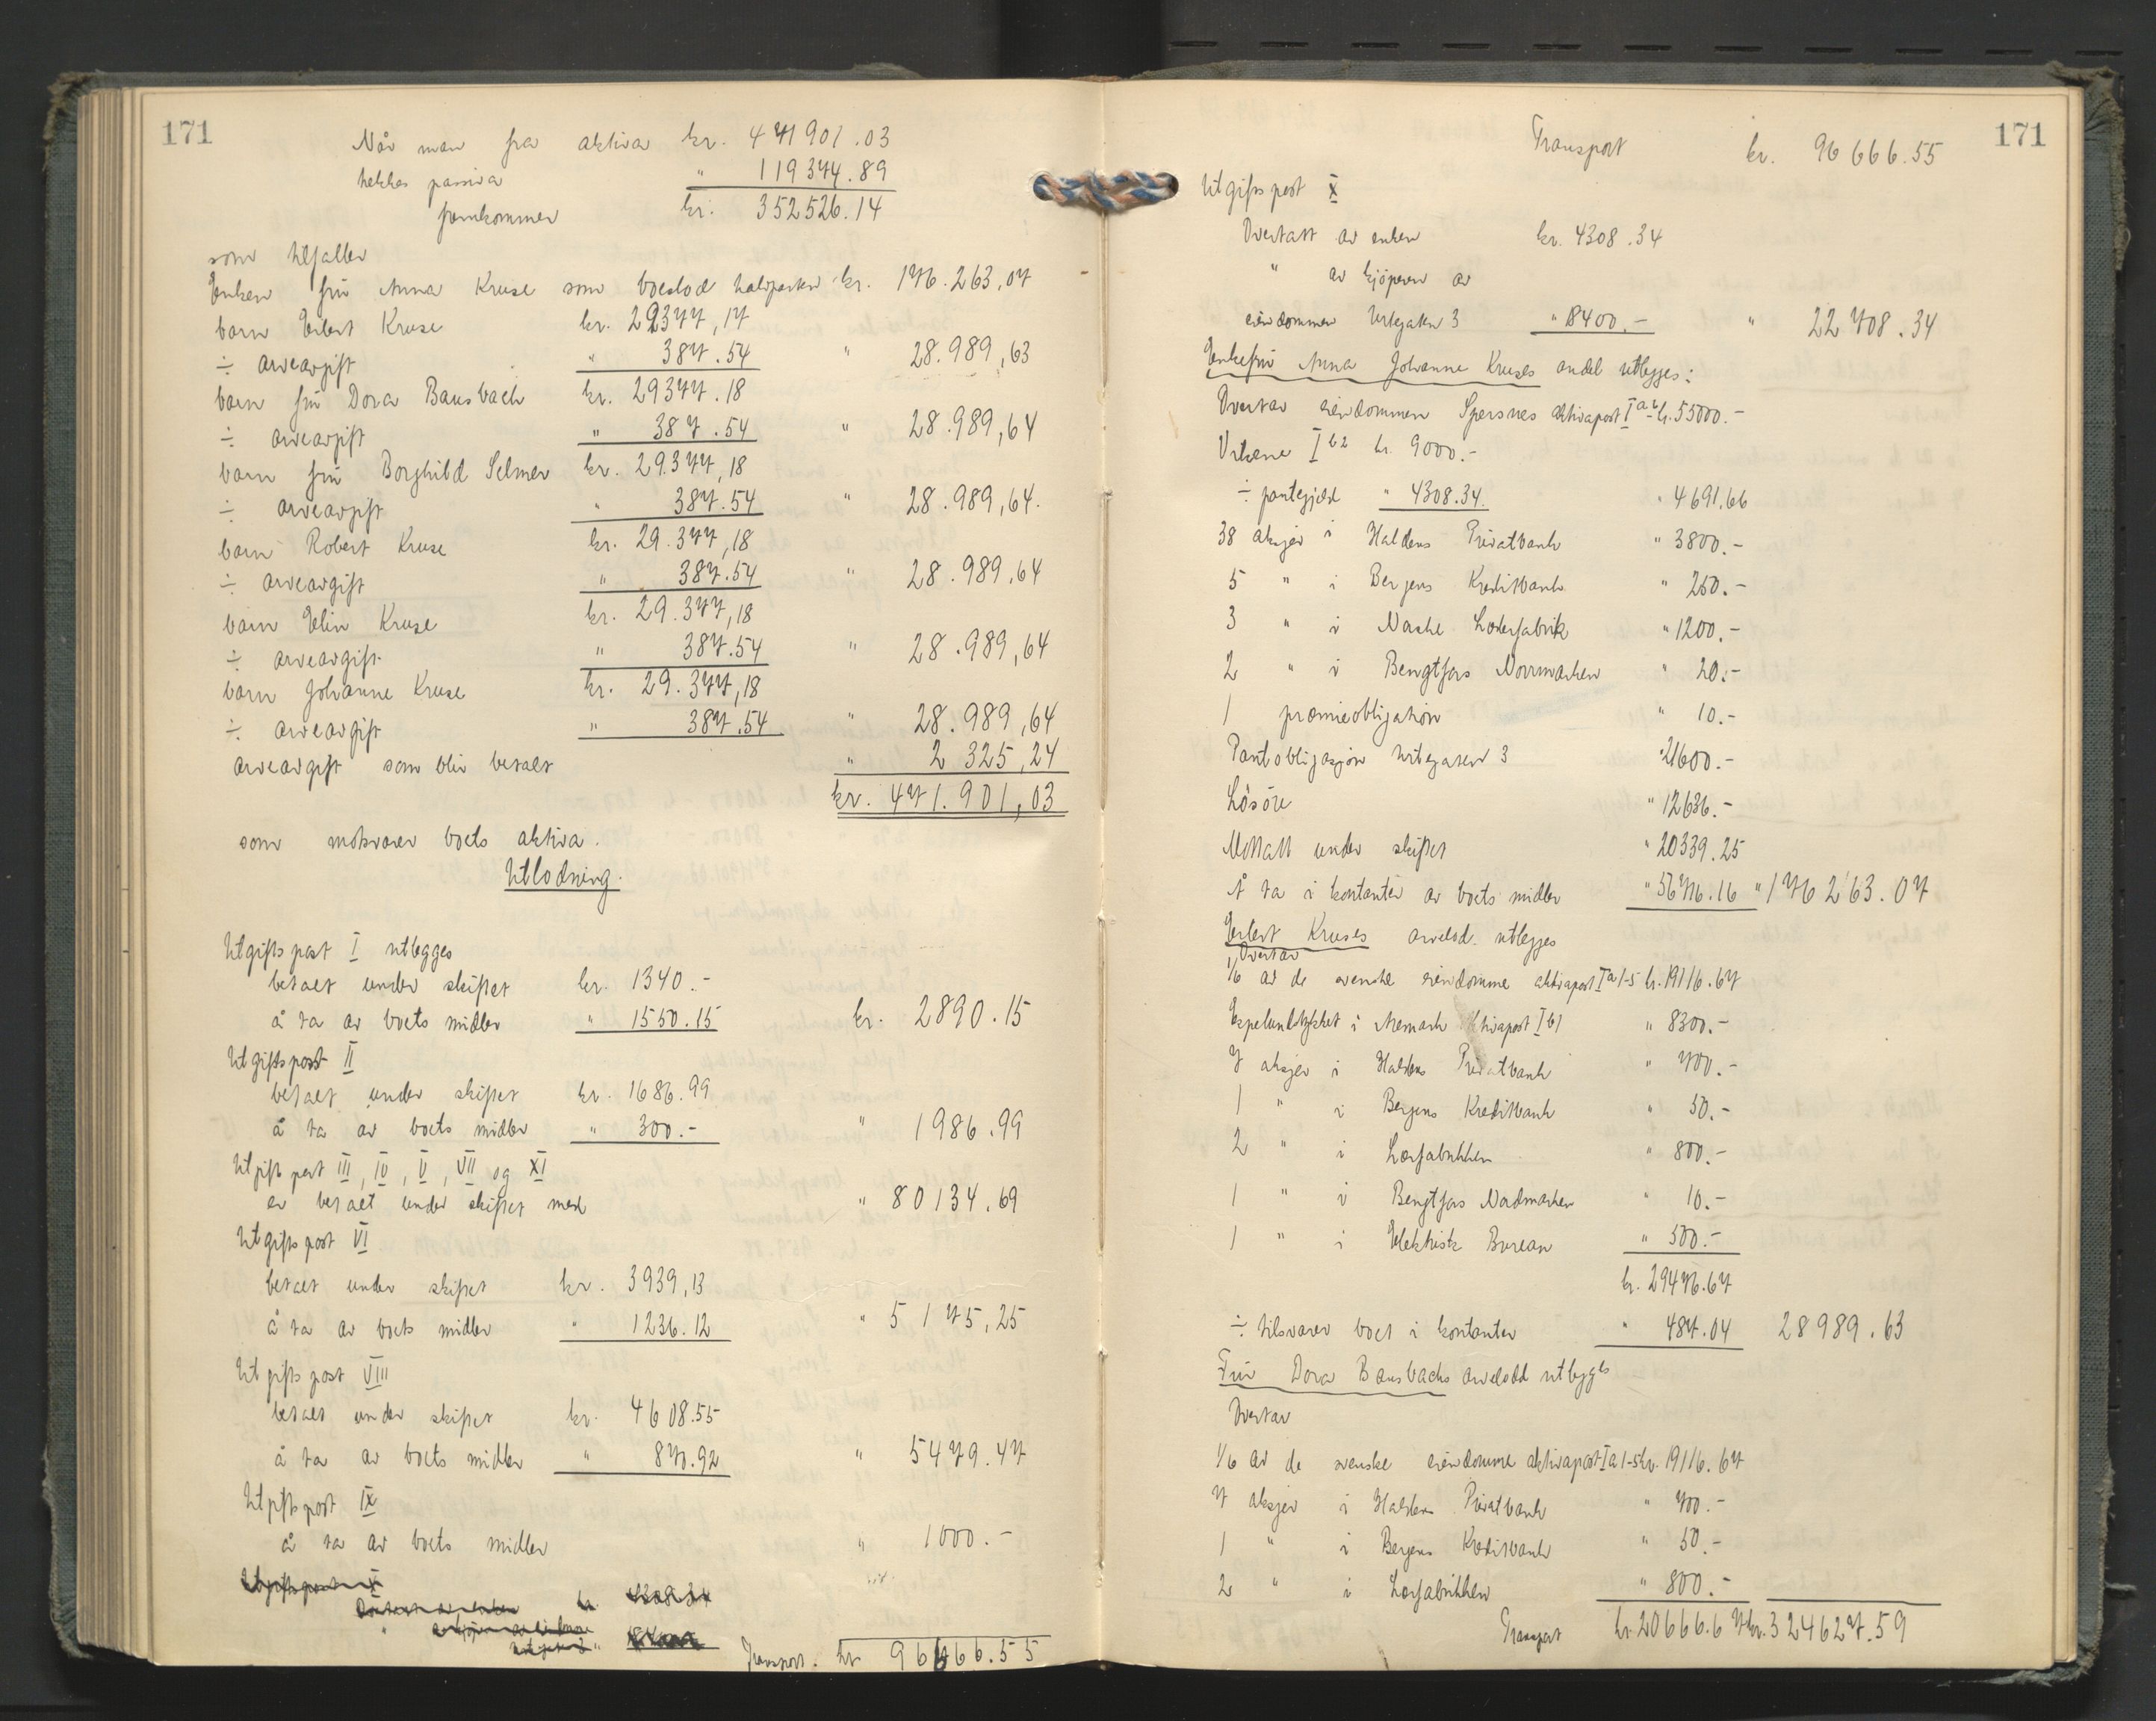 171
Når man fra aktiva kr. 471901.03
trekkes passiva " 119374.89
fremkommer kr. 352526.14
som tilfaller
Enken fru Anna Kruse som boeslod halvparten kr. 176.263,07
barn Eilert Kruse kr. 29377,17
÷ arveavgift " 387.54 " 28.989,63
barn fru Dora Bausbach kr. 29377.18
÷ arveavgift " 387.54 " 28.989,64
barn fru Borghild Selmer kr. 29.377,18
÷ arveavgift " 387.54 " 28.989,64.
barn Robert Kruse kr. 29.377,18
÷ arveavgift " 387.54 " 28.989,64
barn Elin Kruse kr. 29.377,18
÷ arveavgift " 387.54 " 28.989,64
barn Johanne Kruse kr. 29.377,18
÷ arveavgift " 387.54 " 28.989,64
arveavgift som blir betalt " 2 325,24
kr. 471.901,03
som motsvarer boets aktiva.
Utlodning.
Utgiftspost I utlegges
betalt under skiftet kr. 1340.-
å ta av boets midler " 1550.15 kr. 2890.15
Utgiftspost II
betalt under skiftet kr. 1686.99
å ta av boets midler " 300.- " 1986.99
Utgiftspost III, IV, V, VII og XI
er betalt under skiftet med " 80134.69
Utgiftspost VI
betalt under skiftet kr. 3939,13
å ta av boets midler " 1236.12 " 5175,25
Utgiftspost VIII
betalt under skiftet kr. 4608.55
å ta av boets midler " 870.92 " 5479.47
Utgiftspost IX
å ta av boets midler " 1000.-
Utgiftspost X
Overtatt av enken kr. 4308.34
Transport. kr 96666.55
171
Transport kr. 96666.55
Utgiftspost X
Overtatt av enken kr. 4308.34
" av kjöperen av
eiendommen Urtegaten 3 " 18400.- " 22708.34
Enkefru Anna Johanne Kruses andel utlegges:
Overtar eiendommen Sponsnes aktivapost I a 6 kr. 55000.-
Vikene I b2 kr. 9000.-
÷ pantegjeld " 4308.34. " 4691,66
38 aksjer i Haldens Privatbank " 3800.-
5 " i Bergens Kreditbank " 250.-
3 " i Lærfabrik " 1200.-
2 " i Bengtfors Norrmarken " 20.-
1 premieobligation " 10.-
Pantobligasjon Urtegaten 3 " 21600.-
Lösöre " 12636.-
Mottatt under skiftet " 20339.25
Å ta i kontanter av boets midler " 56716.16 " 176263.07
Eilert Kruses arvelod utlegges
Overtar
1/6 av de svenske eiendomme aktivapost I a 1-5 kr. 19116.67
Espelundstykket i Aremark aktivapost I b1 " 8300.-
7 aksjer i Haldens Privatbank " 700.-
1 " i Bergens Kreditbank " 50.-
2 " i Lærfabrikken " 800.-
1 " i Bengtfors Nordmarken " 10.-
1 " i Elektrisk Bureau " 500.-
kr. 29476.67
÷ tilsvarer boet i kontanter " 487.04 28989.63
Fru Dora Bausbachs arvelodd utlegges
Overtar
1/6 av de svenske eiendomme aktivapost I a 1-5 kr. 19116.67
7 aksjer i Haldens Privatbank " 700.-
1 " i Bergens Kreditbank " 50.-
2 " i Lærfabrikken " 800.-
Transport kr. 20666.67 kr. 324627.59